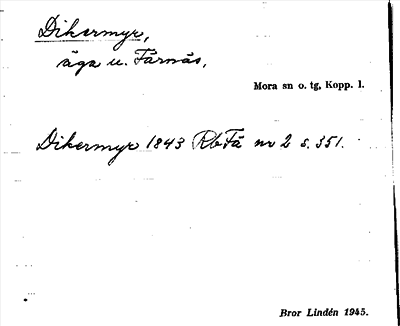 Dikermyr,
äga u. Färnäs,
Mora sn o. tg, Kopp. l.
Dikermyr 1843 Rb Fä nr 2 s. 351.
Bror Lindén 1945.